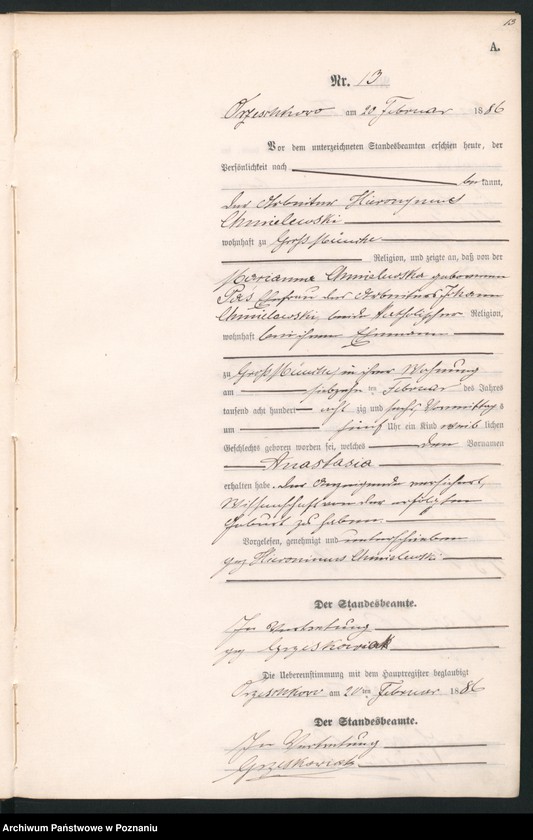 13
A.
Nr. 13
Orzeschkowo am 20 Februar 1886
Vor dem unterzeichneten Standesbeamten erschien heute, der
Persönlichkeit nach
bekannt,
der Arbeiter Hieronymus
Chmielewski
wohnhaft zu Groß Münche
Religion, und zeigte an, daß von der
Marianna Chmielewska geborenen
Pas Ehefrau des Arbeiters Johann
Chmielewski, beide katholischer Religion,
wohnhaft bei ihrem Ehemann
zu Groß Münche, in ihrer Wohnung
am siebzehn ten Februar des Jahres
tausend acht hundert acht zig und sechs, Vormittags
um fünf Uhr ein Kind weib lichen
Geschlechts geboren worden sei, welches den Vornamen
Anastasia
erhalten habe. Der Anzeigende versichert,
Wissenschaft von der erfolgten
Geburt zu haben.
Vorgelesen, genehmigt und unterschrieben
gez Hieronimus Chmielewski
Der Standesbeamte.
In Vertretung
gez Grzeskowiak
Die Uebereinstimmung mit dem Hauptregister beglaubigt
Orzeschkowo am 20 ten Februar 1886
Der Standesbeamte.
In Vertretung
Grzeskowiak
Archiwum Państwowe w Poznaniu